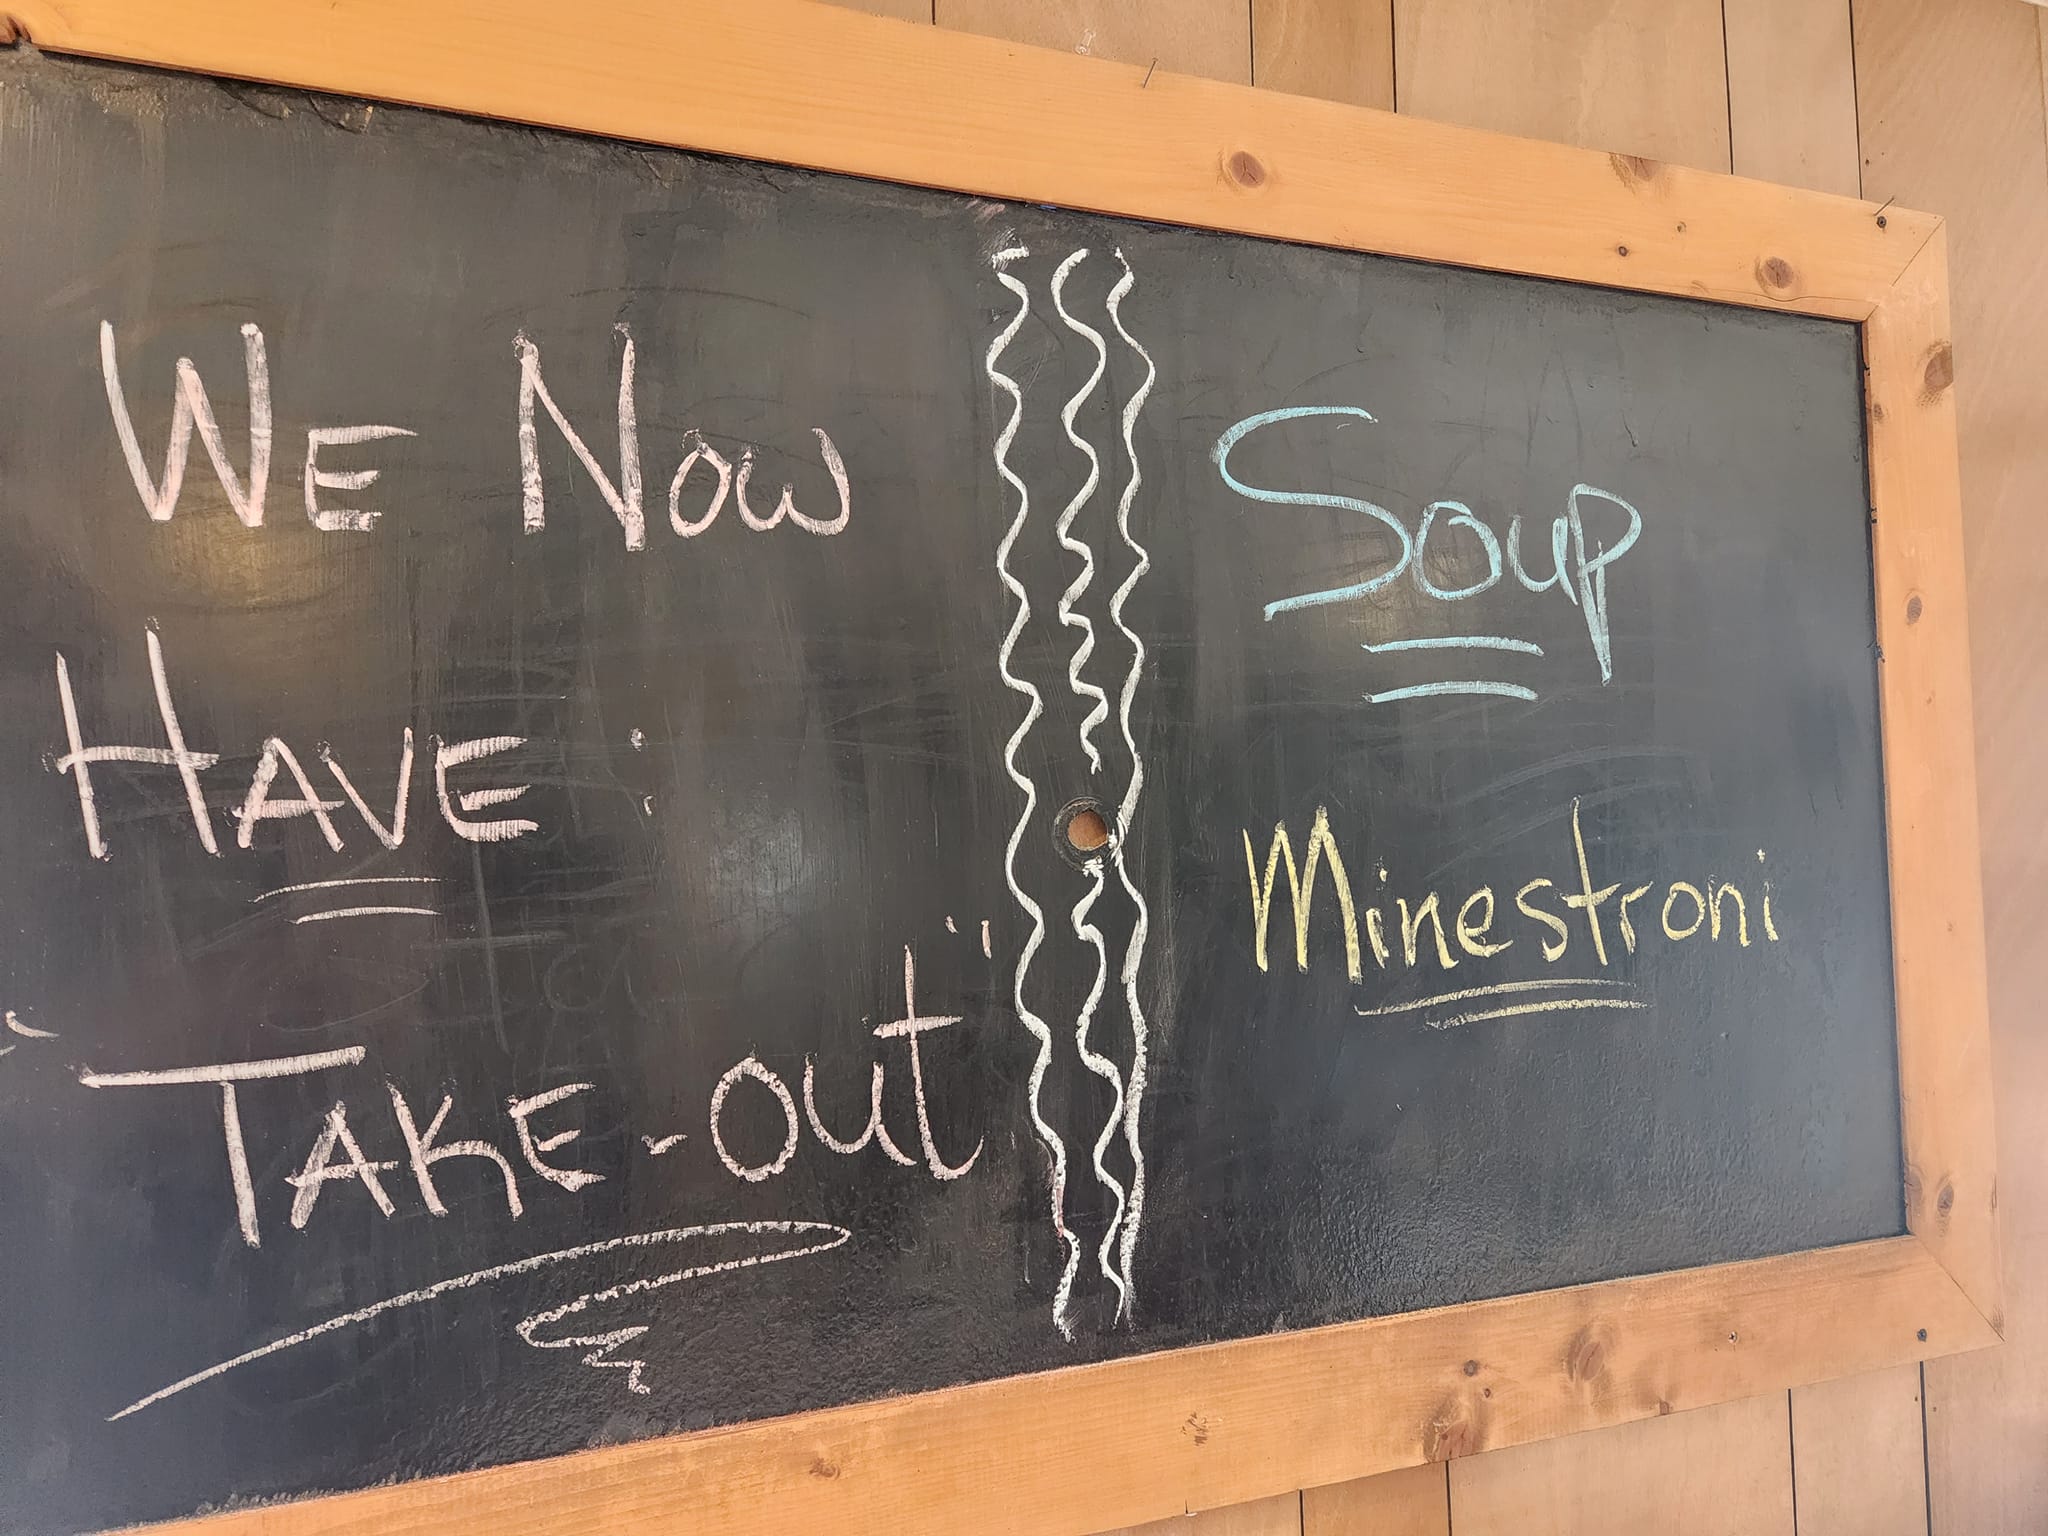 We Now
Have:
"Take-out"
Soup
Minestroni